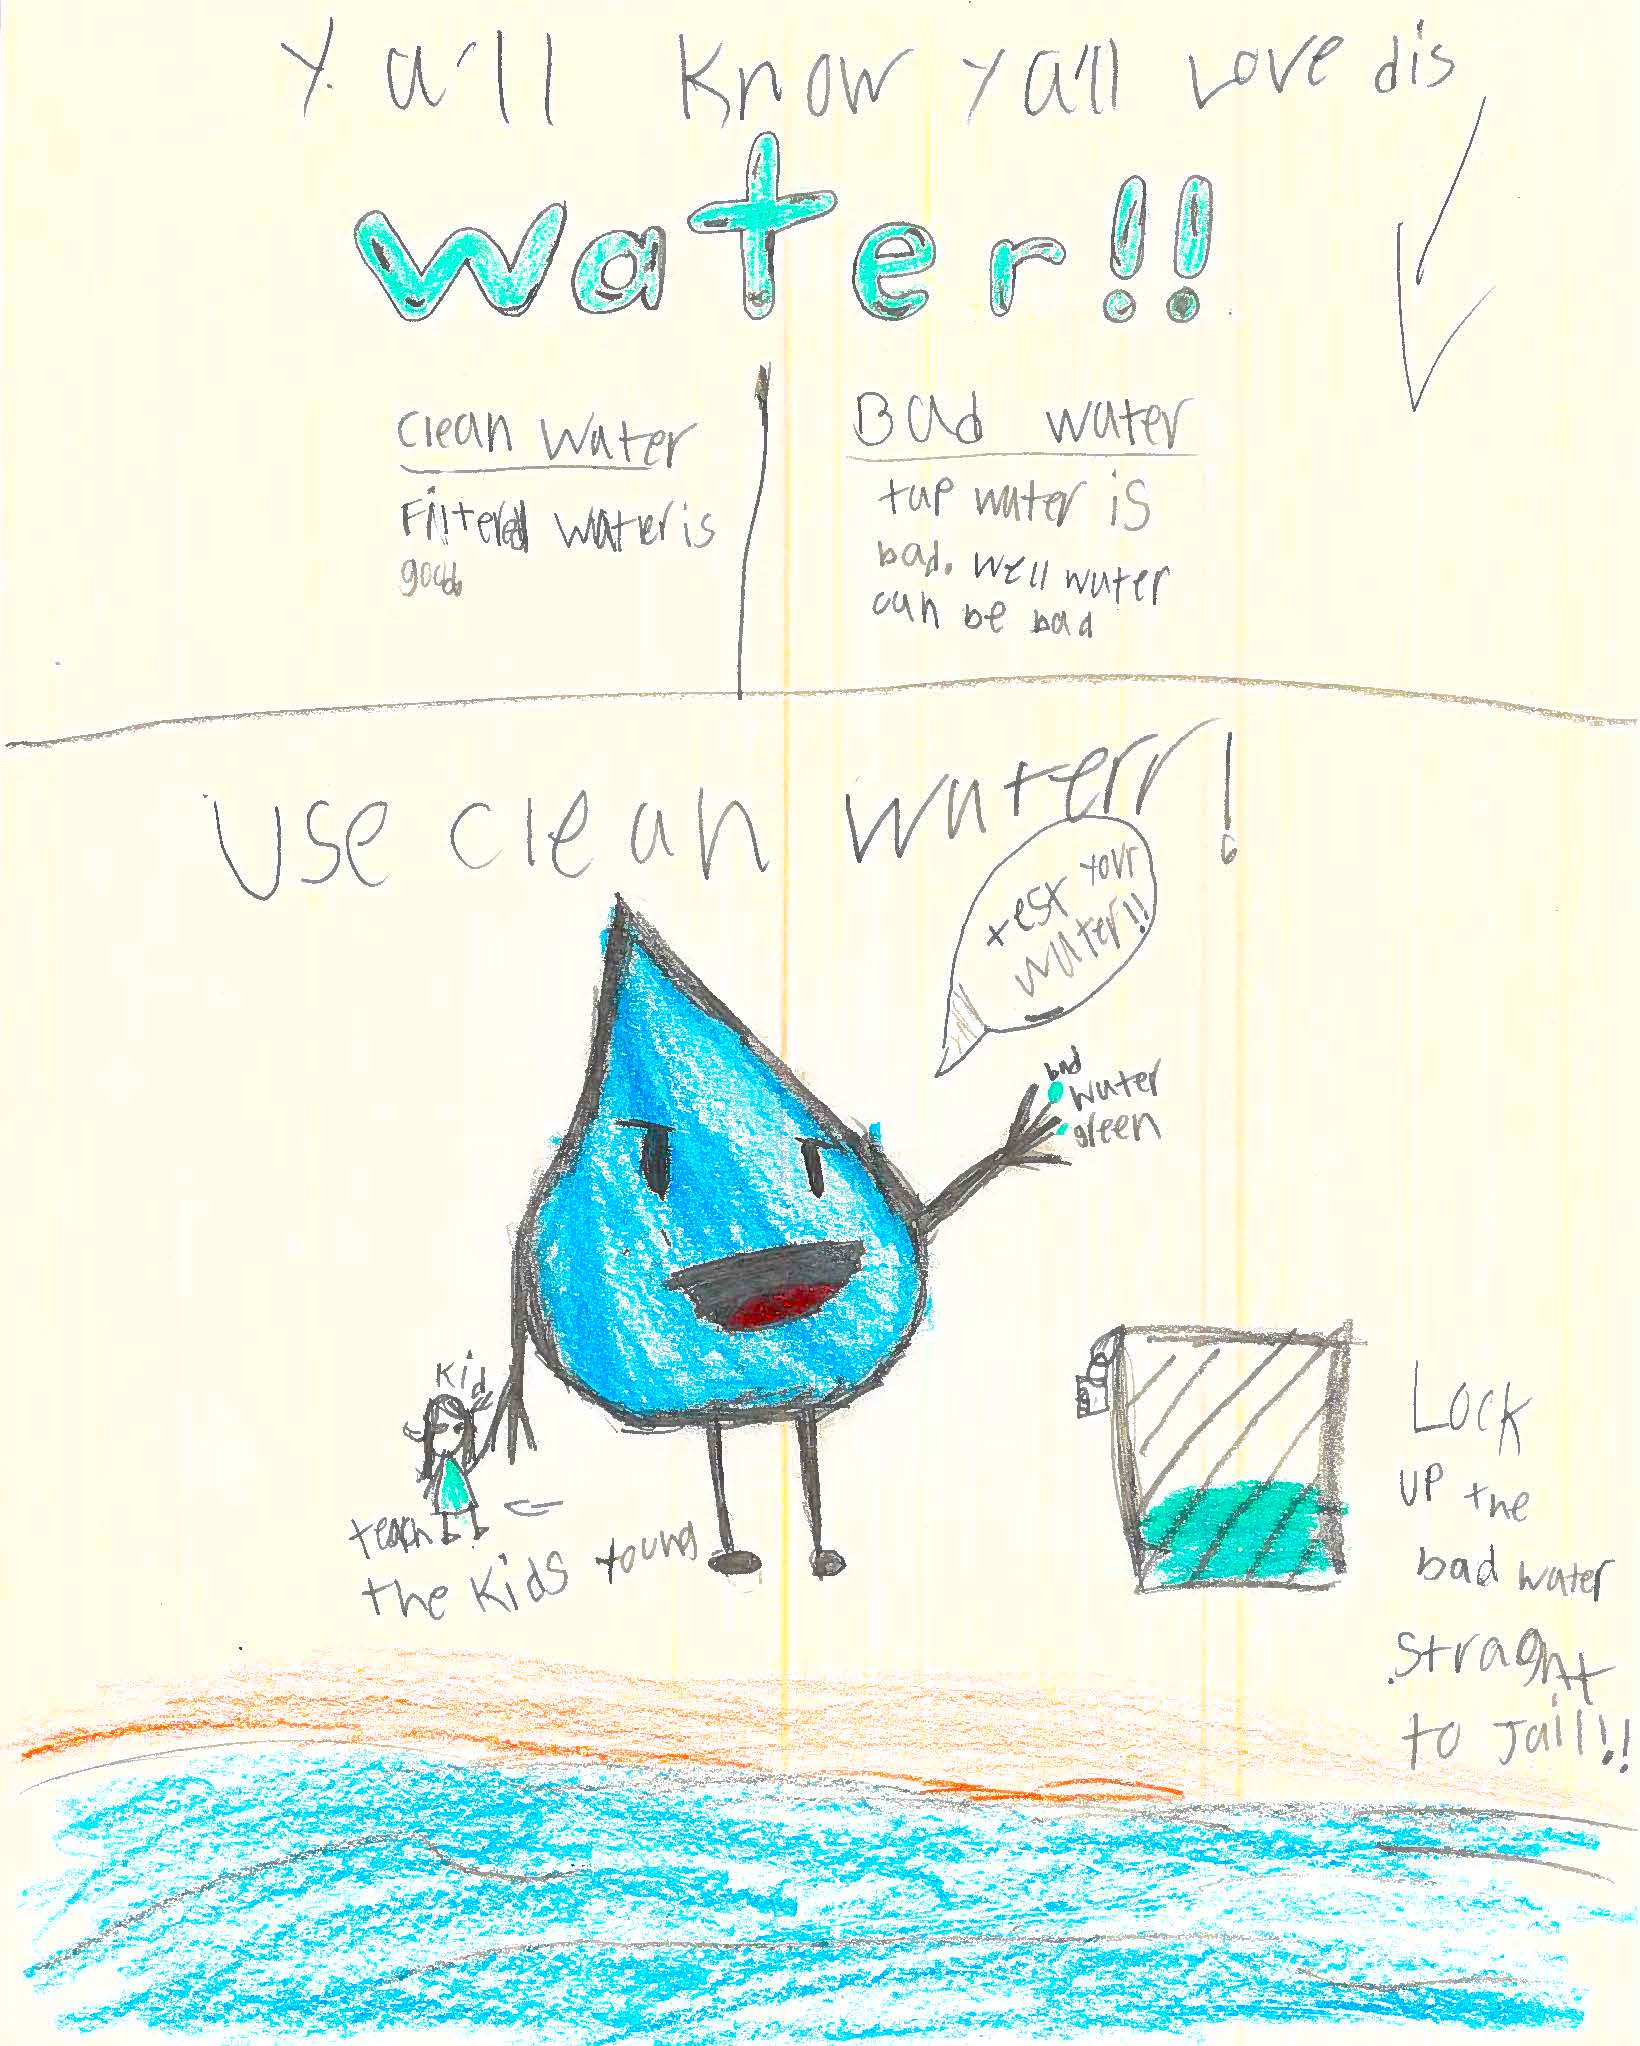 Ya'll know ya'll Love dis
water!!
Clean water
Filtered water is
good.
Bad water
tap water is
bad. Well water
can be bad
Use clean waterr!
test your
water!!
bad
water
green
Kid
teach
the kids young
Lock
up the
bad water
straght
to Jail!!